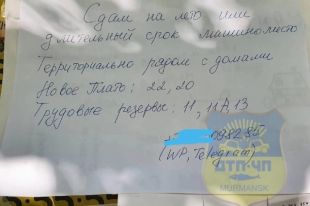 Сдам на лето или
длительный срок машиноместо
Территориально рядом с домами
Новое Плато: 22, 20
Трудовые резервы: 11, 11А, 13
(WP, Telegram)
ДТП-ЧП
MURMANSK